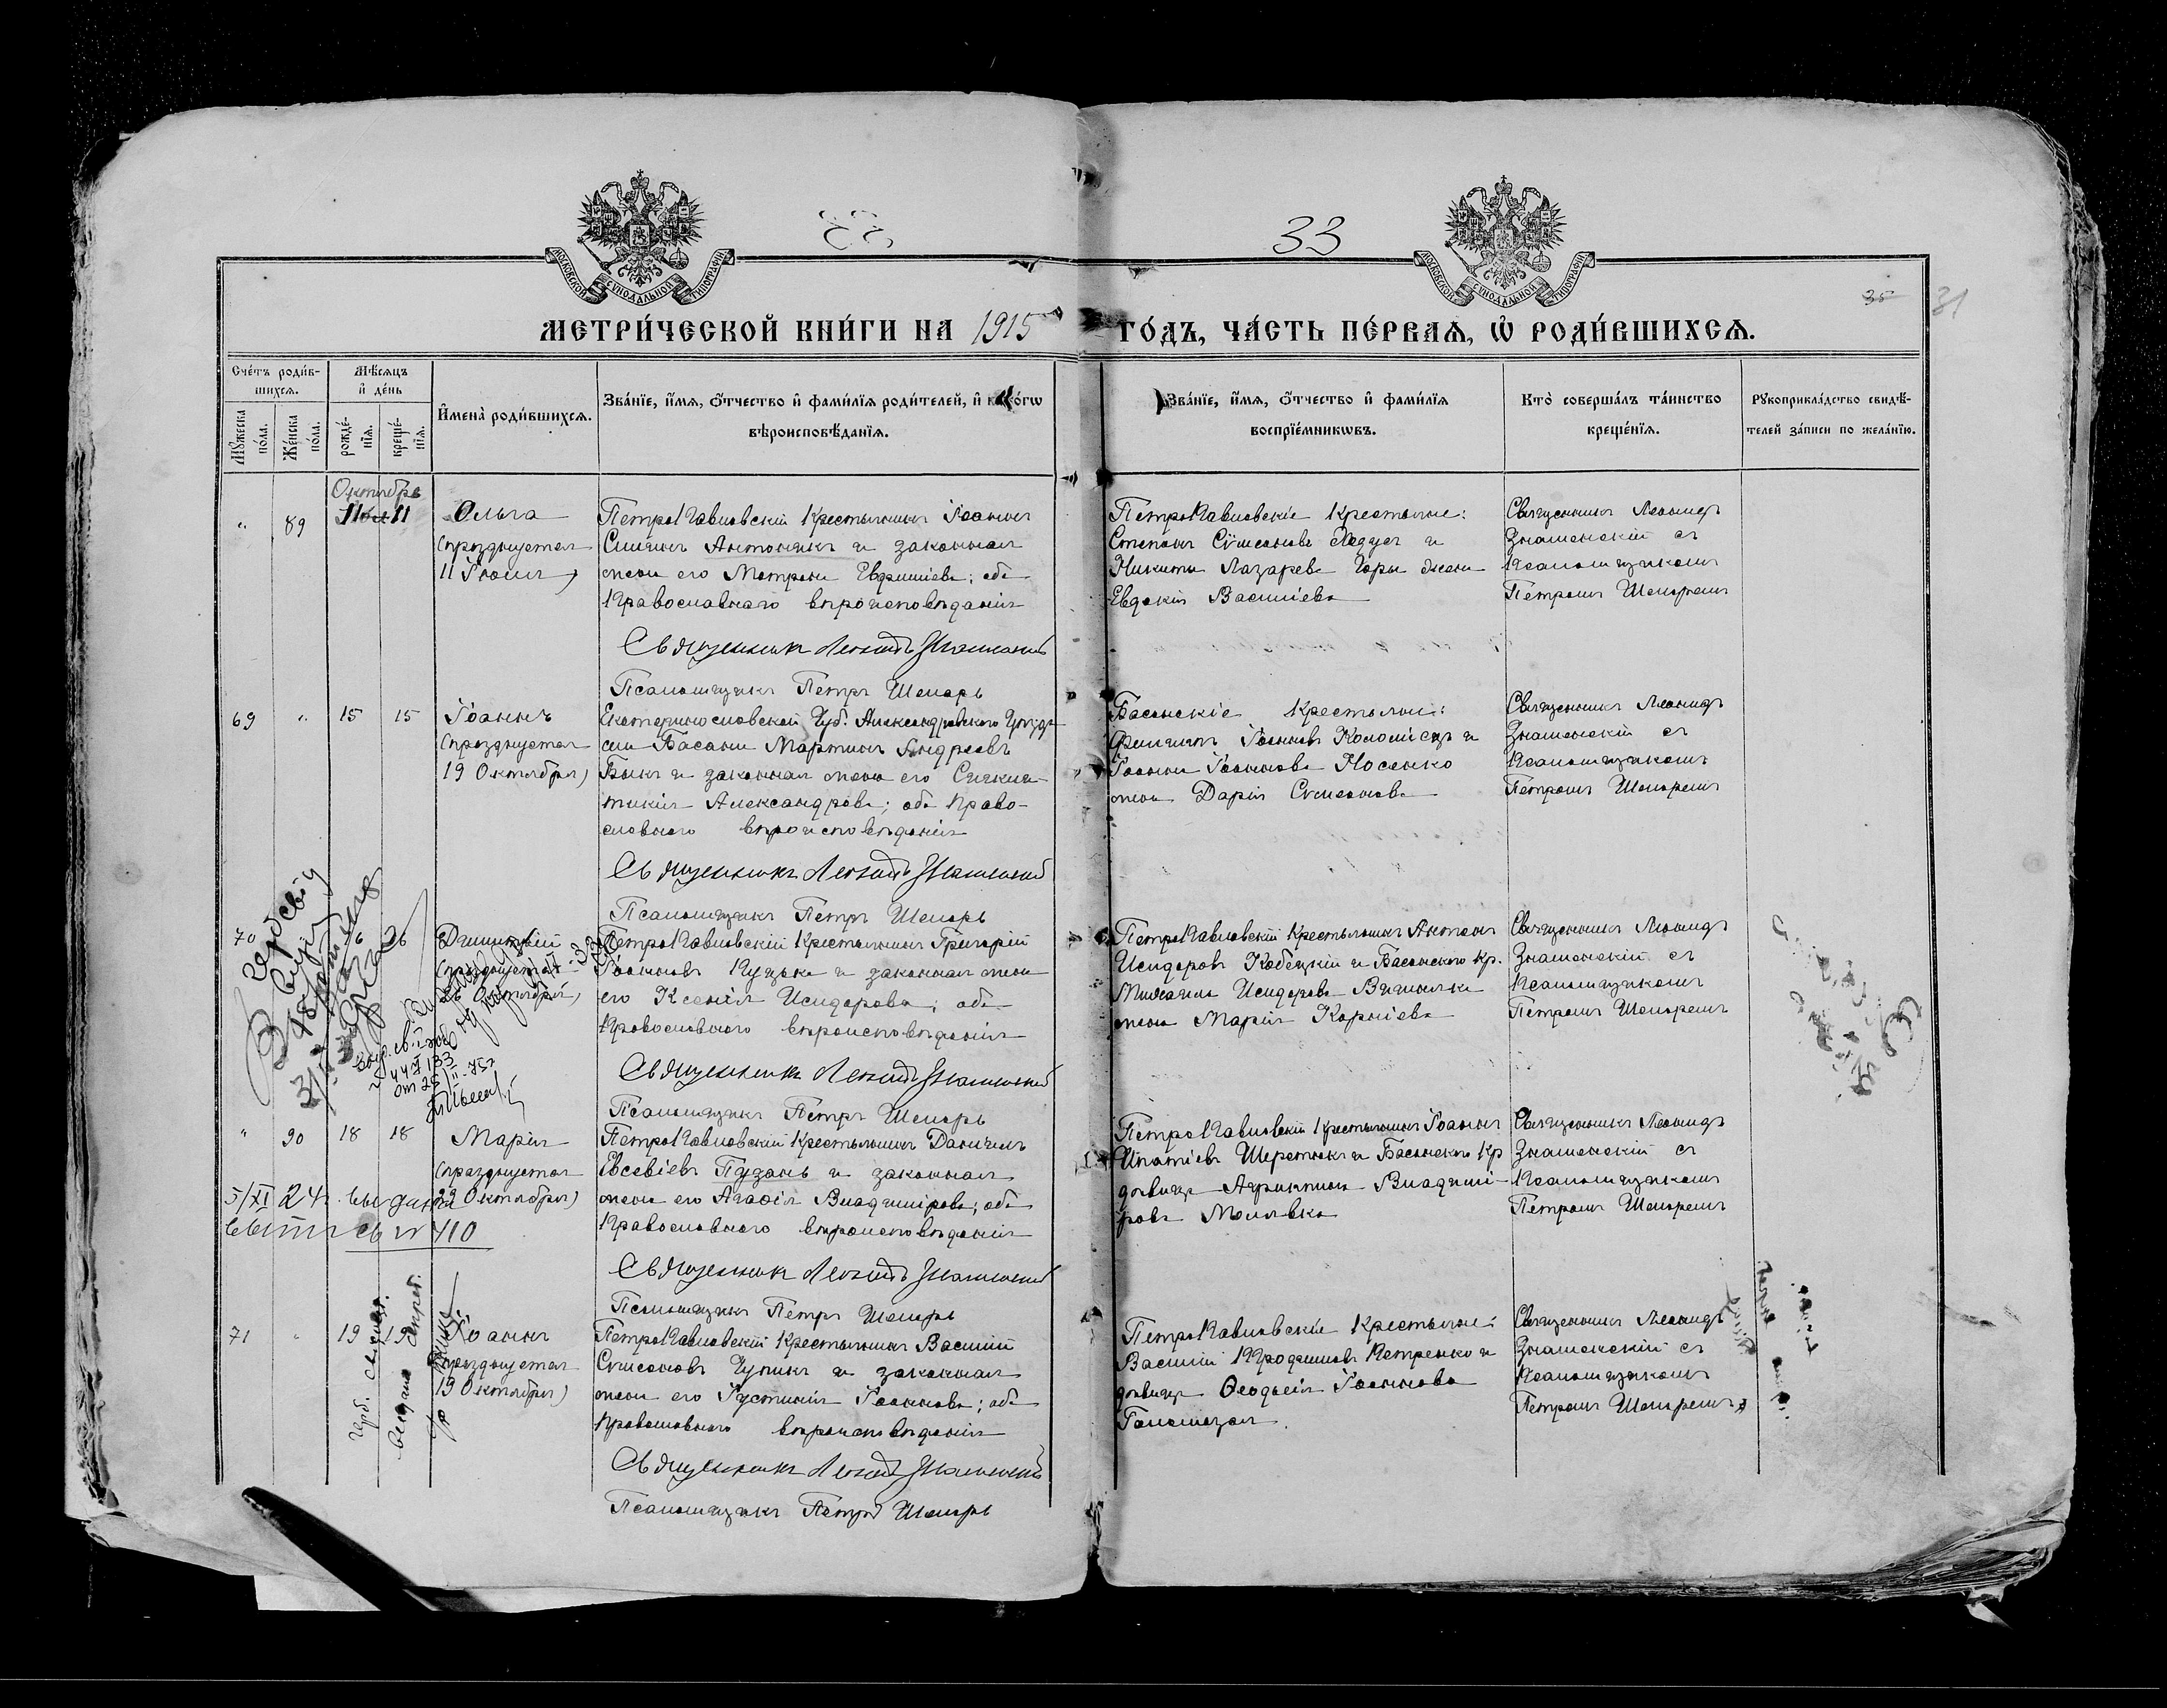 33
МОСКОВСКОЙ СѴНОДАЛЬНОЙ ТИПОГРАФІИ
МОСКОВСКОЙ СѴНОДАЛЬНОЙ ТИПОГРАФІИ
35 31
МЕТРИ́ЧЕСКОЙ КНИ́ГИ НА 1915 ГО́ДЪ, ЧА́СТЬ ПЕ́РВАЯ, Ѡ҆ РОДИ́ВШИХСЯ.
Сче́тъ роди́в-
шихся.
Мѣ́сяцъ
и҆ де́нь
Мꙋ́жеска
по́ла.
Же́нска
по́ла.
рожде́-
нїя.
креще́-
нїя.
И҆мена̀ роди́вшихся.
Зва́нїе, и҆́мя, ѻ҆́тчество и҆ фами́лїя роди́телей, и҆ како́гѡ
вѣроисповѣ́данїя.
Зва́нїе, и҆́мя, ѻ҆́тчество и҆ фами́лїя
воспрїе́мникѡвъ.
Кто̀ соверша́лъ та́инство
креще́нїя.
Рꙋкоприкла́дство свидѣ́-
телей за́писи по жела́нїю.
Октября
" 89 11 11 Ольга
(празднуется
11 Іюля)
ПетроПавловскій крестьянинъ Іоаннъ
Антонякъ и законная
жена его Матрона Евфиміева; оба
Православнаго вѣроисповѣданія
Священникъ Леонидъ Знаменскій
Псаломщикъ Петръ Шепарь
ПетроПавловскіе крестьяне:
Степанъ Сѵмеоновъ и
Никиты Лазарева жена
Евдокія Василіева
Священникъ Леонидъ
Знаменскій съ
Псаломщикомъ
Петромъ Шепаремъ
69 " 15 15 Іоаннъ
(празднуется
19 Октября)
Екатеринославской Губ. Александровскаго Уѣзда
села Басани Мартинъ Андреевъ
Быкъ и законная жена его Сигкли-
тикія Александрова; оба Право-
славнаго вѣроисповѣданія
Священникъ Леонидъ Знаменскій
Псаломщикъ Петръ Шепарь
Басанскіе крестьяне:
Филиппъ Іоанновъ Коломіецъ и
Іоанна Іоаннова Носенко
жена Дарія Сѵмеонова
Священникъ Леонидъ
Знаменскій съ
Псаломщикомъ
Петромъ Шепаремъ
70 16 16 Димитрій
(празднуется
26 Октября)
ПетроПавловскій крестьянинъ Григорій
Іоанновъ Куцько и законная жена
его Ксенія Исидорова; оба
Православнаго вѣроисповѣданія
Священникъ Леонидъ Знаменскій
Псаломщикъ Петръ Шепарь
ПетроПавловскій крестьянинъ Антонъ
Исидоровъ Кобецкій и Басанского кр.
Михаила Исидорова
жена Марія Корніева
Священникъ Леонидъ
Знаменскій съ
Псаломщикомъ
Петромъ Шепаремъ
" 90 18 18 Марія
(празднуется
22 Октября)
ПетроПавловскій крестьянинъ Даніилъ
Евсевіевъ Пудань и законная
жена его Агафія Владимірова; оба
Православнаго вѣроисповѣданія
Священникъ Леонидъ Знаменскій
Псаломщикъ Петръ Шепарь
ПетроПавловскій крестьянинъ Іоаннъ
Ипатіевъ Шереметъ и Басанского кр
дѣвица Владимі-
рова Молявка
Священникъ Леонидъ
Знаменскій съ
Псаломщикомъ
Петромъ Шепаремъ
5/XI 24 выдана
№ 410
71 " 19 19 Іоаннъ
(празднуется
19 Октября)
ПетроПавловскій крестьянинъ Василій
Сѵмеоновъ Чупикъ и законная
жена его Іустинія Іоаннова; оба
Православнаго вѣроисповѣданія
Священникъ Леонидъ Знаменскій
Псаломщикъ Петръ Шепарь
ПетроПавловскіе крестьяне:
Василій Петренко и
дѣвица Ѳеодосія Іоаннова
Священникъ Леонидъ
Знаменскій съ
Псаломщикомъ
Петромъ Шепаремъ